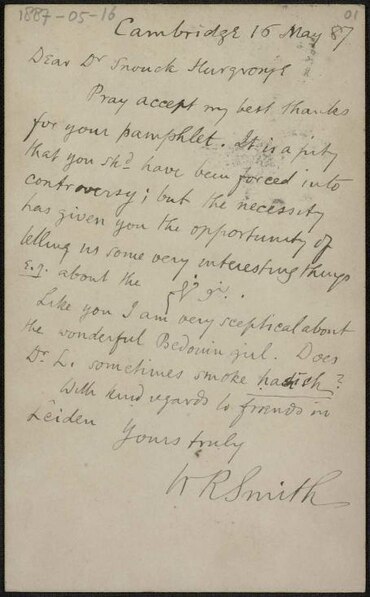 1887-05-16
01
Cambridge 16 May 87
Dear Dr Snouck Hurgronje
Pray accept my best thanks
for your pamphlet. It is a pity
that you shd have been forced into
controversy; but the necessity
has given you the opportunity of
telling us some very interesting things
e.g. about the
Like you I am very sceptical about
the wonderful Bedouin girl. Does
Dr. L. sometimes smoke hadish?
With kind regards to friends in
Leiden Yours truly
W R Smith